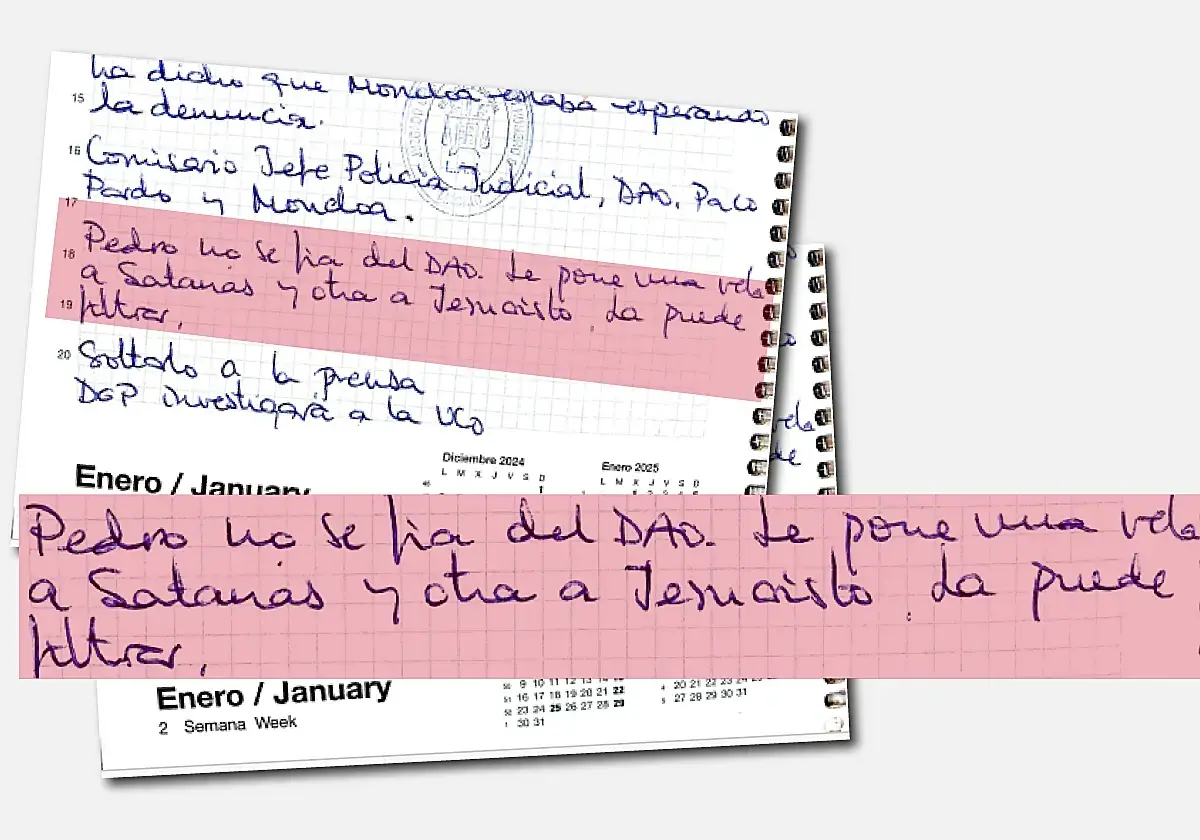 ha dicho que Mondoa estaba esperando
15 la denuncia.
16 Comisario Jefe Policía Judicial, DAO, Paco
Pardo y Mondoa.
17
18 Pedro no se fia del DAO. Le pone una vela
a Satanás y otra a Jesucristo. La puede
19 filtrar.
20 Soltarlo a la prensa
DGP investigará a la UCO
Enero / January
Diciembre 2024
L M X J V S D
1
Enero 2025
L M X J V S D
vela
Pedro no se fia del DAO. Le pone una vela
a Satanás y otra a Jesucristo. La puede
filtrar.
Enero / January
2 Semana Week
50 9 10 11 12 13 14
51 16 17 18 19 20 21 22
52 23 24 25 26 27 28 29
1 30 31
4 20 21 22 23 24
5 27 28 29 30 31